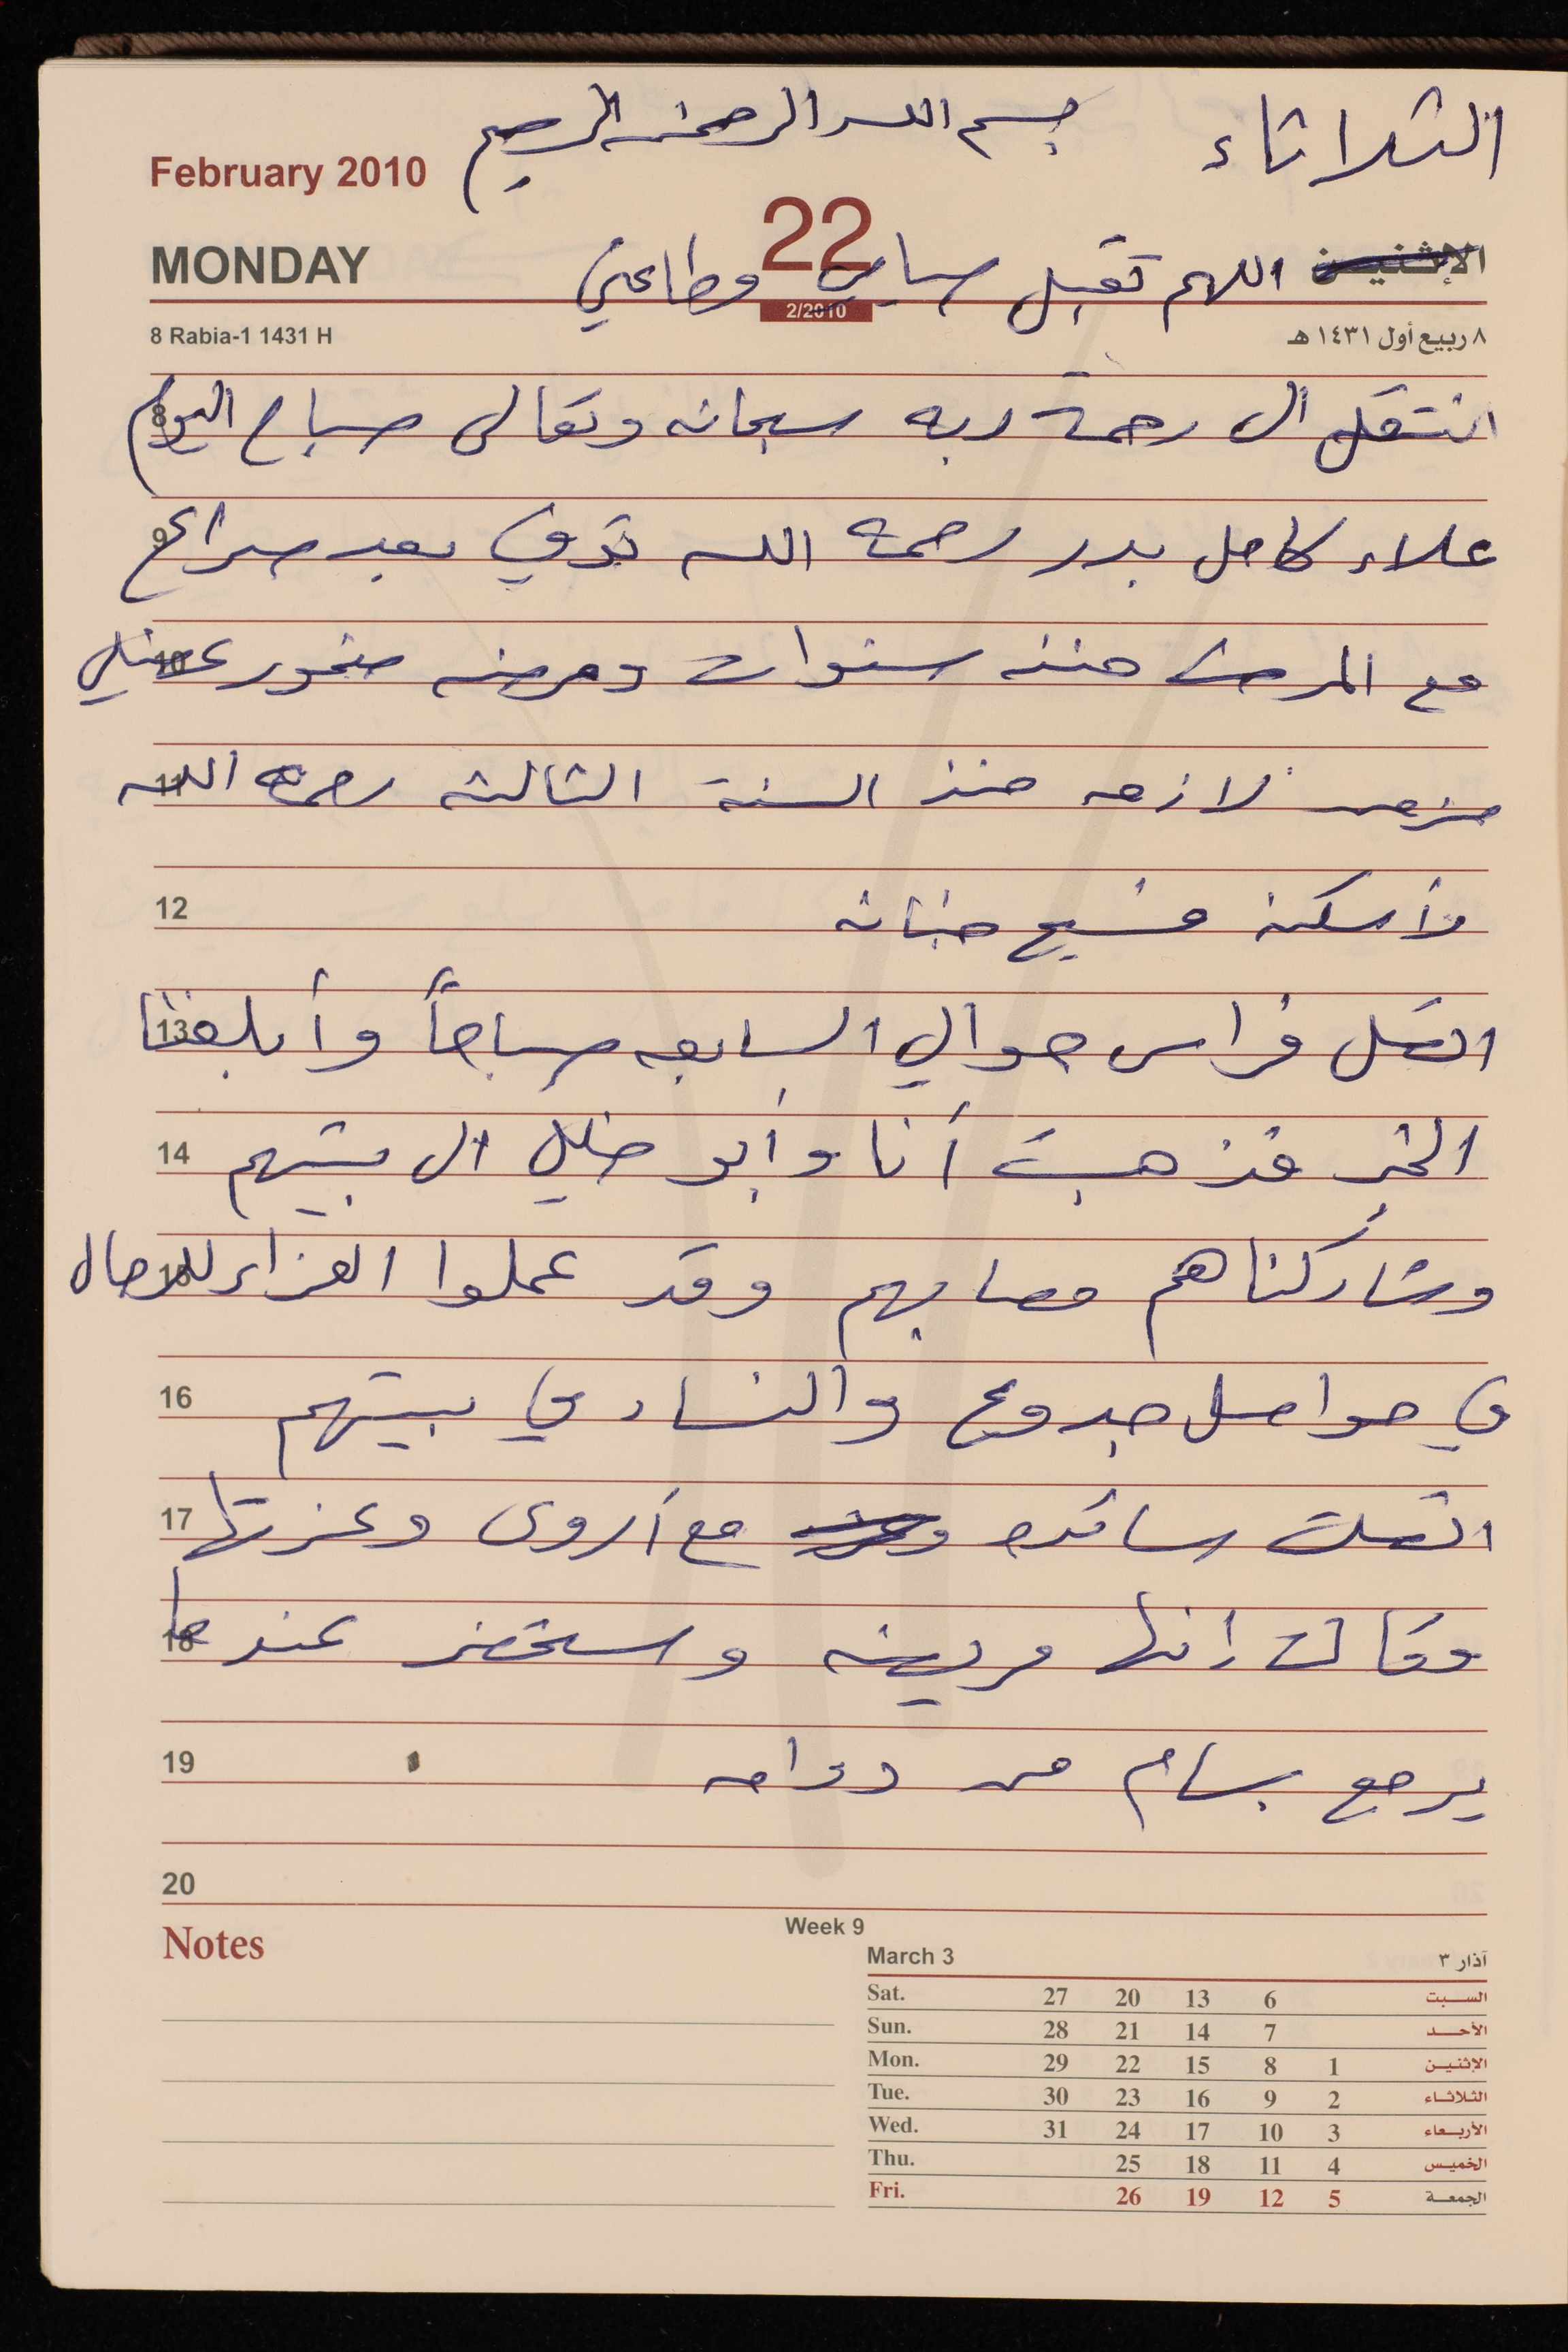 الثلاثاء بسم الله الرحمن الرحيم
February 2010
22
MONDAY
الإثنين اللهم تقبل صيامي وطاعتي
2/2010
8 Rabia-1 1431 H
٨ ربيع أول ١٤٣١ هـ
8 انتقل الى رحمة ربه سبحانه وتعالى صباح اليوم
9 علاء كامل بدر رحمه الله توفي بعد صراع
10 مع المرض منذ سنوات ومرضه ضمور عضلي
11 مزمن لازمه منذ السنة الثالثه رحمه الله
12 وأسكنه فسيح جنانه
13 اتصل فراس حوالي السابعه صباحاً وأبلغنا
14 الخبر فذهبت أنا وأبو خليل الى بيتهم
15 وشاركناهم مصابهم وقد عملوا العزاء للرجال
16 في حواصل جدوع والنساء في بيتهم
17 اتصلت سائده مع أروى وعزتها
18 وقالت إنها مريضه وستحضر عندما
19 يرجع بسام من دوامه
20
Notes
Week 9
March 3 آذار ٣
Sat. 27 20 13 6 السبت
Sun. 28 21 14 7 الأحد
Mon. 29 22 15 8 1 الإثنين
Tue. 30 23 16 9 2 الثلاثاء
Wed. 31 24 17 10 3 الأربعاء
Thu. 25 18 11 4 الخميس
Fri. 26 19 12 5 الجمعة